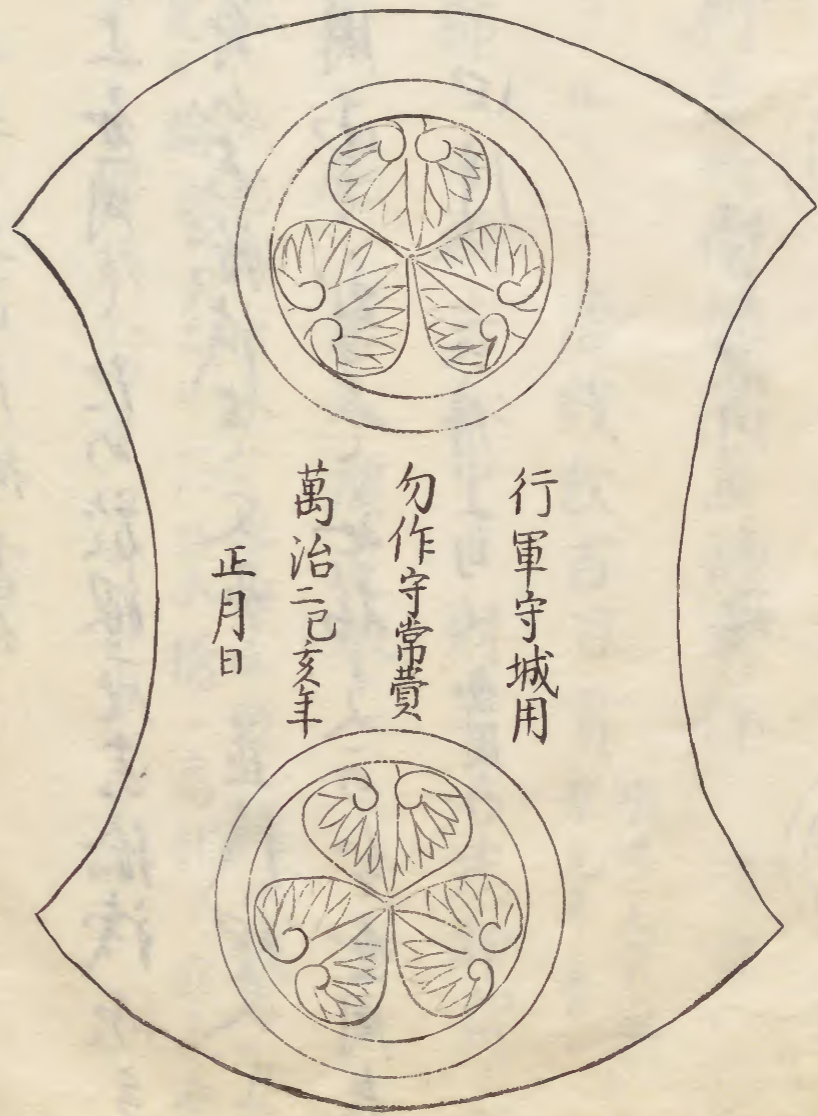 行軍守城用
勿作守常費
萬治二己亥年
正月日